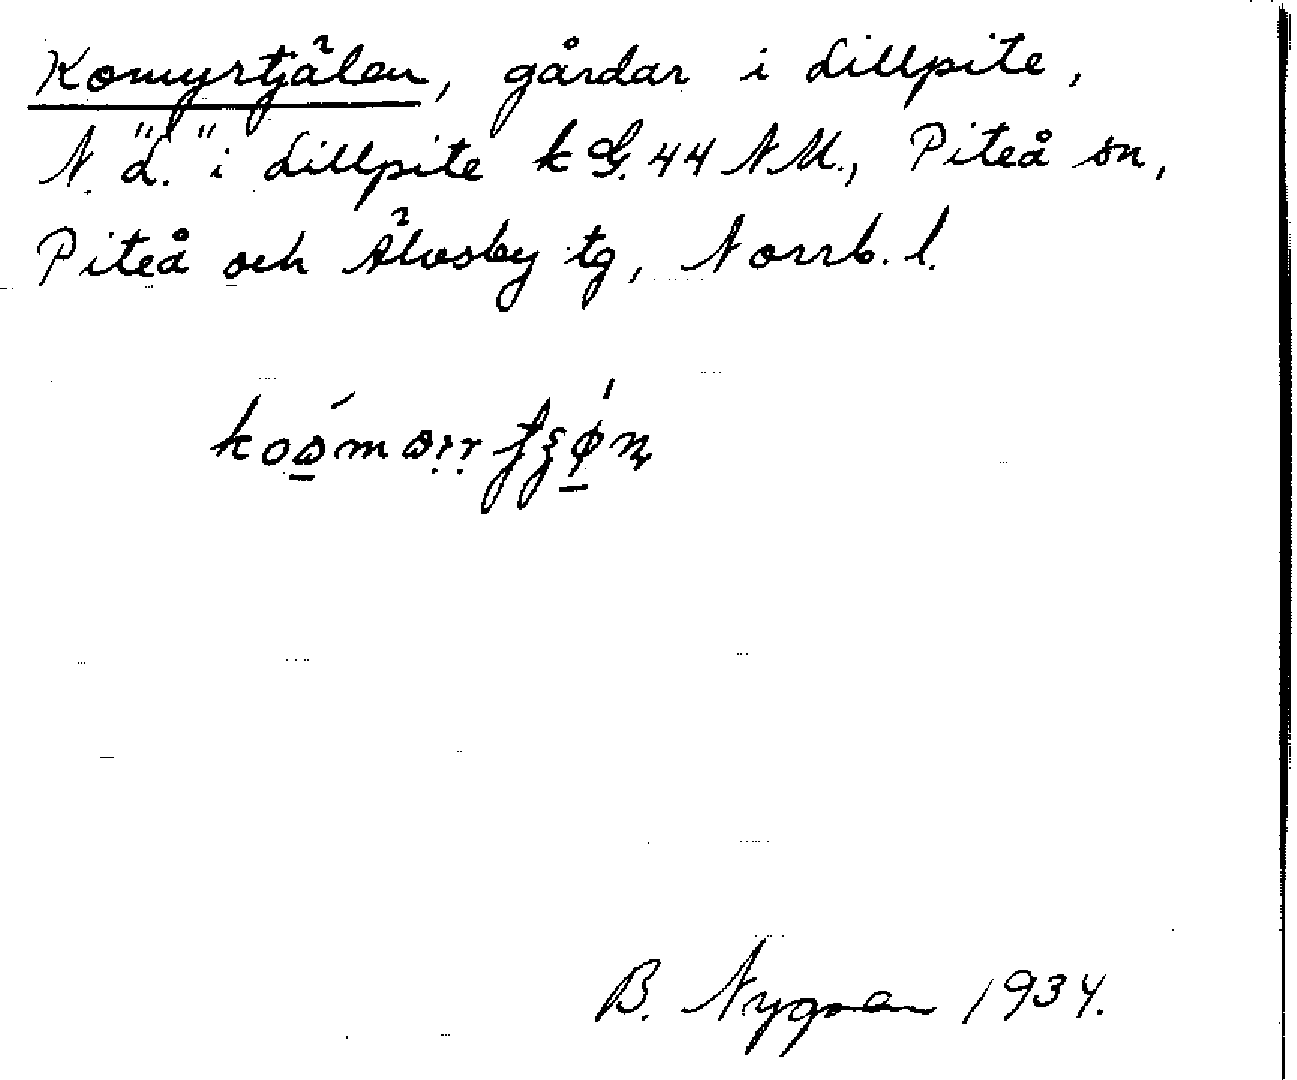 Komyrtjälen, gårdar i Lillpite,
N. "L." i Lillpite k G. 44 NM., Piteå sn,
Piteå och Älvsby tg, Norrb. l.
B. Nygren 1934.